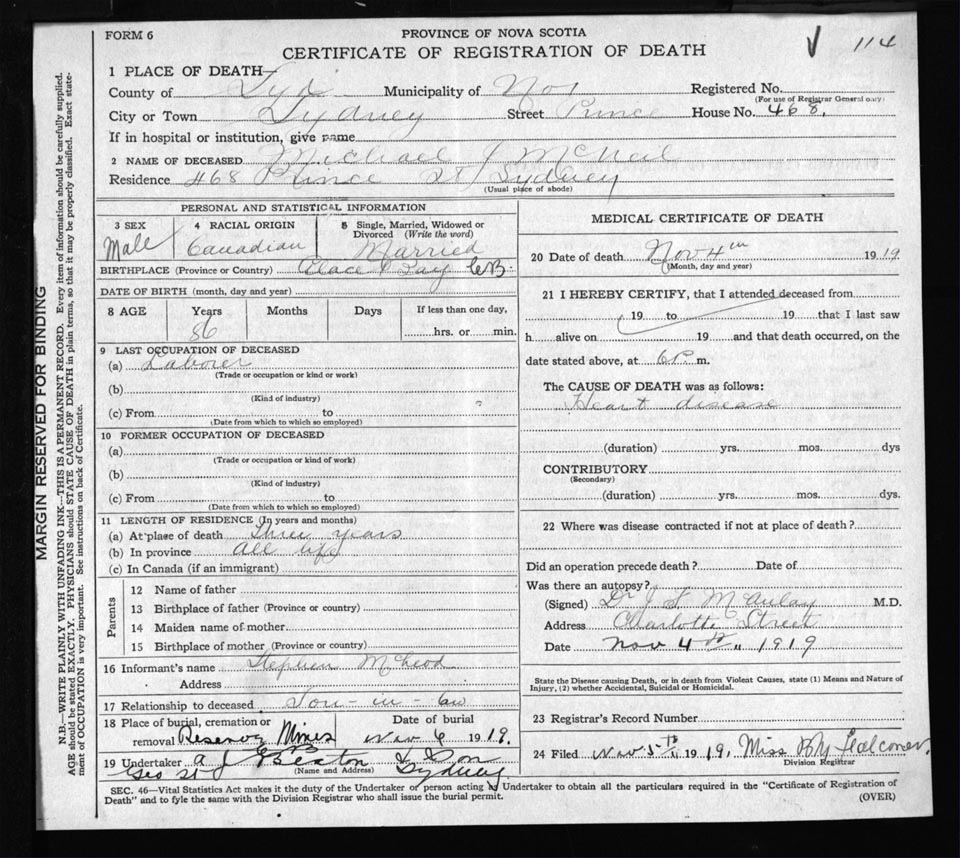 FORM 6
PROVINCE OF NOVA SCOTIA
CERTIFICATE OF REGISTRATION OF DEATH
114
1 PLACE OF DEATH
County of Syd Municipality of No1 Registered No.
(For use of Registrar General only)
City or Town Sydney Street Prince House No. 468.
If in hospital or institution, give name
2 NAME OF DECEASED Michael J McNeil
Residence 468 Prince St Sydney
(Usual place of abode)
PERSONAL AND STATISTICAL INFORMATION
3 SEX Male
4 RACIAL ORIGIN Canadian
5 Single, Married, Widowed or Divorced (Write the word) Married
BIRTHPLACE (Province or Country) Glace Bay CB.
DATE OF BIRTH (month, day and year)
8 AGE Years Months Days If less than one day,
86 hrs. or min.
9 LAST OCCUPATION OF DECEASED
(a) Laborer
(Trade or occupation or kind or work)
(b)
(Kind of industry)
(c) From to
(Date from which to which so employed)
10 FORMER OCCUPATION OF DECEASED
(a)
(Trade or occupation or kind of work)
(b)
(Kind of industry)
(c) From to
(Date from which to which so employed)
11 LENGTH OF RESIDENCE (In years and months)
(a) At place of death Three years
(b) In province all life
(c) In Canada (if an immigrant)
Parents
12 Name of father
13 Birthplace of father (Province or country)
14 Maiden name of mother
15 Birthplace of mother (Province or country)
16 Informant's name Stephen McLeod
Address
17 Relationship to deceased Son-in-law
18 Place of burial, cremation or removal Reserve Mines
Date of burial Nov 6 1919.
19 Undertaker A J Beaton & Son
(Name and Address)
Geo St Sydney
MEDICAL CERTIFICATE OF DEATH
20 Date of death Nov 4th 1919
(Month, day and year)
21 I HEREBY CERTIFY, that I attended deceased from
19 to 19 that I last saw
h alive on 19 and that death occurred, on the
date stated above, at 6 P. m.
The CAUSE OF DEATH was as follows:
Heart disease
(duration) yrs. mos. dys
CONTRIBUTORY
(Secondary)
(duration) yrs. mos. dys.
22 Where was disease contracted if not at place of death?
Did an operation precede death? Date of
Was there an autopsy?
(Signed) Dr J S McAulay M.D.
Address Charlotte Street
Date Nov 4th 1919
State the Disease causing Death, or in death from Violent Causes, state (1) Means and Nature of
Injury, (2) whether Accidental, Suicidal or Homicidal.
23 Registrar's Record Number
24 Filed Nov 5th 1919, Miss Falconer.
Division Registrar
SEC. 46—Vital Statistics Act makes it the duty of the Undertaker or person acting as Undertaker to obtain all the particulars required in the "Certificate of Registration of
Death" and to fyle the same with the Division Registrar who shall issue the burial permit.
(OVER)
MARGIN RESERVED FOR BINDING
N.B.—WRITE PLAINLY WITH UNFADING INK—THIS IS A PERMANENT RECORD. Every item of information should be carefully supplied.
AGE should be stated EXACTLY. PHYSICIANS should STATE CAUSE OF DEATH in plain terms, so that it may be properly classified. Exact state-
ment of OCCUPATION is very important. See instructions on back of Certificate.